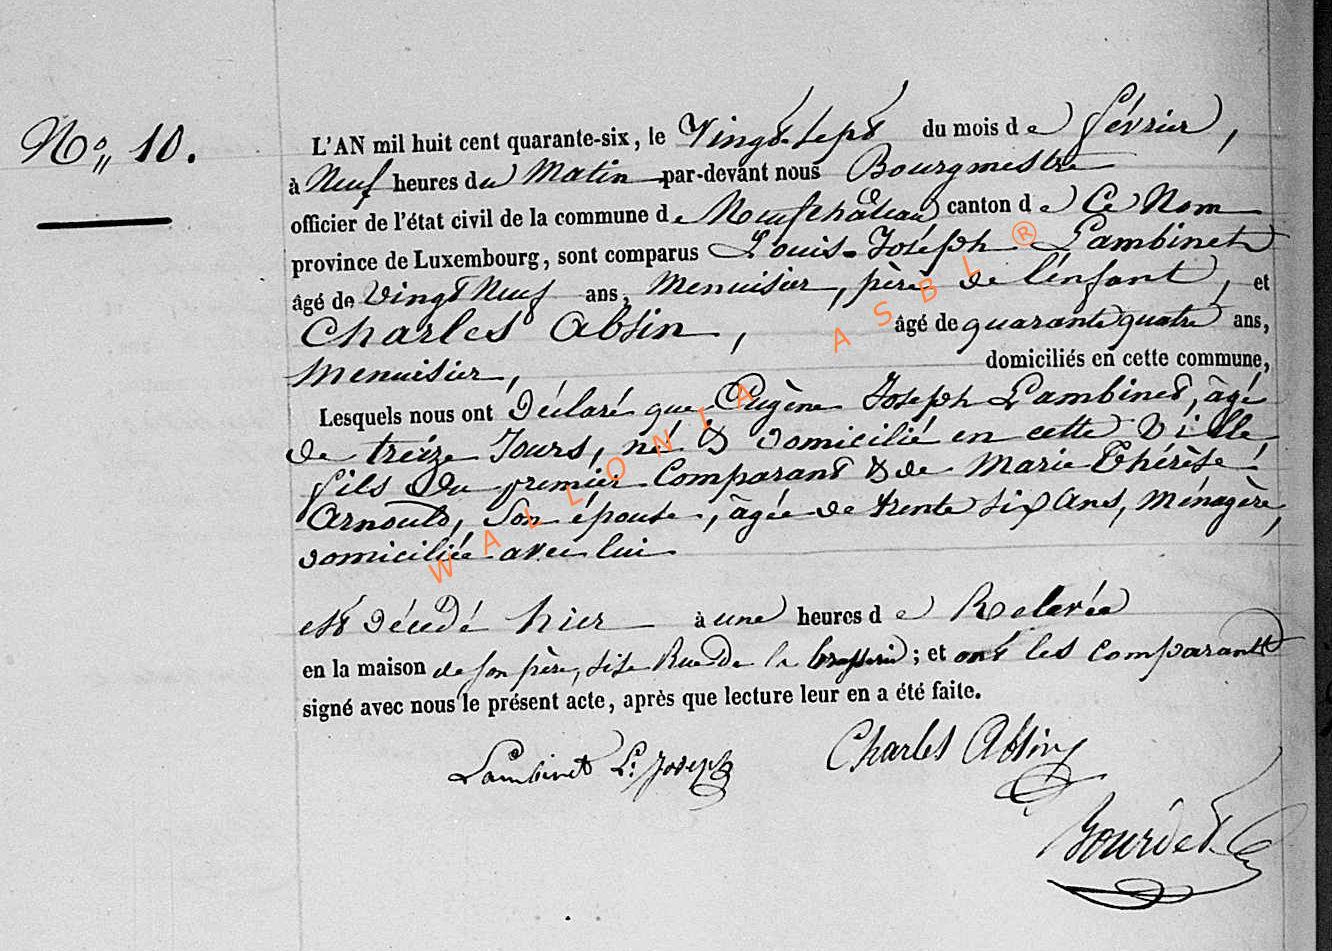 No 10.
L'AN mil huit cent quarante-six, le Vingt-Sept du mois de février,
à Neuf heures du Matin par-devant nous Bourgmestre
officier de l'état civil de la commune de Neufchâteau canton de Ce Nom
province de Luxembourg, sont comparus Louis-Joseph Lambinet
âgé de Vingt Neuf ans, Menuisier, père de l'enfant, et
Charles Absin, âgé de quarante quatre ans,
Menuisier, domiciliés en cette commune,
Lesquels nous ont Déclaré que Eugène Joseph Lambinet, âgé
de treize Jours, né & domicilié en cette Ville,
fils du premier Comparant & de Marie Thérèse
Arnould, Son épouse, âgée de trente six Ans, Ménagère,
domiciliée avec lui
est Décédé hier à une heures de Relevée
en la maison de son père, sise Rue De la brasserie; et ont les Comparants
signé avec nous le présent acte, après que lecture leur en a été faite.
Lambinet L. Joseph Charles Absin
Bourdet
WALLONIA ASBL ®